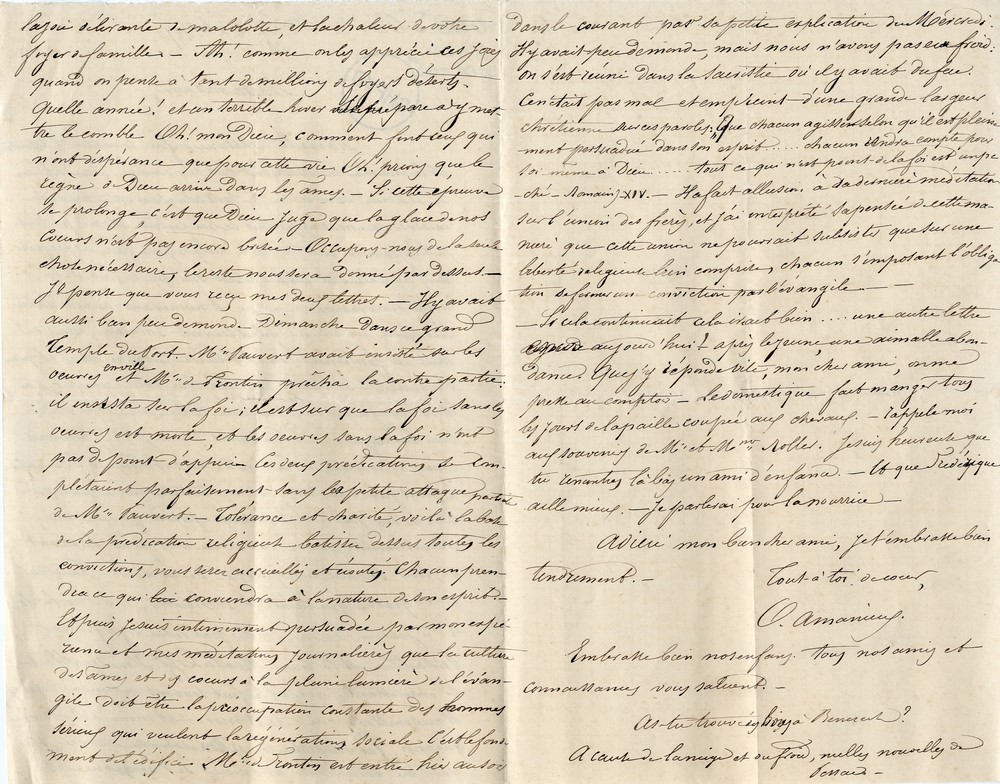 la joie délirante de malolotte, et la chaleur de votre
foyer de famille — Ah! comme on les apprécie ces joies
quand on pense à tant de millions de foyers déserts.
Quelle année! et un terrible hiver se prépare à y met
tre le comble Oh! mon Dieu, comment font ceux qui
n'ont d'espérance que pour cette vie Oh! prions que le
règne de Dieu arrive dans les âmes. — Si cette épreuve
se prolonge c'est que Dieu juge que la glace de nos
coeurs n'est pas encore brisée — Occupons-nous de la seule
chose nécessaire, le reste nous sera donné par dessus. —
Je pense que vous reçu mes deux lettres. — Il y avait
aussi bien peu de monde Dimanche dans ce grand
Temple du Port. Mr Vauvert avait insisté sur les
oeuvres en ville et Mr de Frontin prêcha la contre partie:
il insista sur la foi; il est sur que la foi sans les
oeuvres est morte, et les oeuvres sans la foi n'ont
pas de point d'appui — Ces deux prédications se com-
plétaient parfaitement sans la petite attaque
de Mr Vauvert. — Tolérance et charité, voilà la base
de la prédication religieuse batissez dessus toutes les
convictions, vous serez accueillis et écoutés. Chacun pren-
dra ce qui conviendra à la nature de son esprit. —
Et puis je suis intimement persuadée par mon expé
rience et mes méditations journalières que la culture
des âmes et des coeurs à la pleine lumière de l'évan-
gile doit être la préoccupation constante des hommes
sérieux qui veulent la régénération sociale C'est le fonde
ment de l'édifice Mr de Frontin est entré hier au soir
dans le courant par sa petite explication du Mercredi.
Il y avait peu de monde, mais nous n'avons pas eu froid:
on s'est réuni dans la sacristie où il y avait du feu.
C'en était pas mal et empreint d'une grande largeur
chrétienne sur ces paroles: Que chacun agisse selon qu'il est pleine
ment persuadé dans son esprit..... chacun rendra compte pour
soi même à Dieu...... tout ce qui n'est point de la foi est un pé
ché — Romains XIV. — Il a fait allusion à sa dernière méditation
sur l'union des frères, et j'ai interprété sa pensée de cette ma-
nière que cette union ne pourrait subsister que sur une
liberté religieuse bien comprise, chacun s'imposant l'obliga
tion de former une conviction par l'évangile — —
— Si cela continuait cela irait bien.... une autre lettre
aujourd'hui! après le jeune une aimable abon-
dance. Que j'y réponde vite, mon cher ami, on me
presse au comptoir — Le domestique fait manger tous
les jours de la paille coupée aux chevaux. — rappele moi
aux souvenirs de Mr et Mme Robles. Je suis heureuse que
tu retrouves là bas un ami d'enfance. — Et que Frédérique
aille mieux. — Je parlerai pour la nourrice —
Adieu mon bien cher ami, je t'embrasse bien
tendrement. —
Tout à toi de coeur,
O. Amanieux.
Embrasse bien nos enfans. Tous nos amis et
connaissances vous saluent. —
As-tu trouvé à Beneust?
A cause de la neige et du froid, nulles nouvelles de
Pessac —